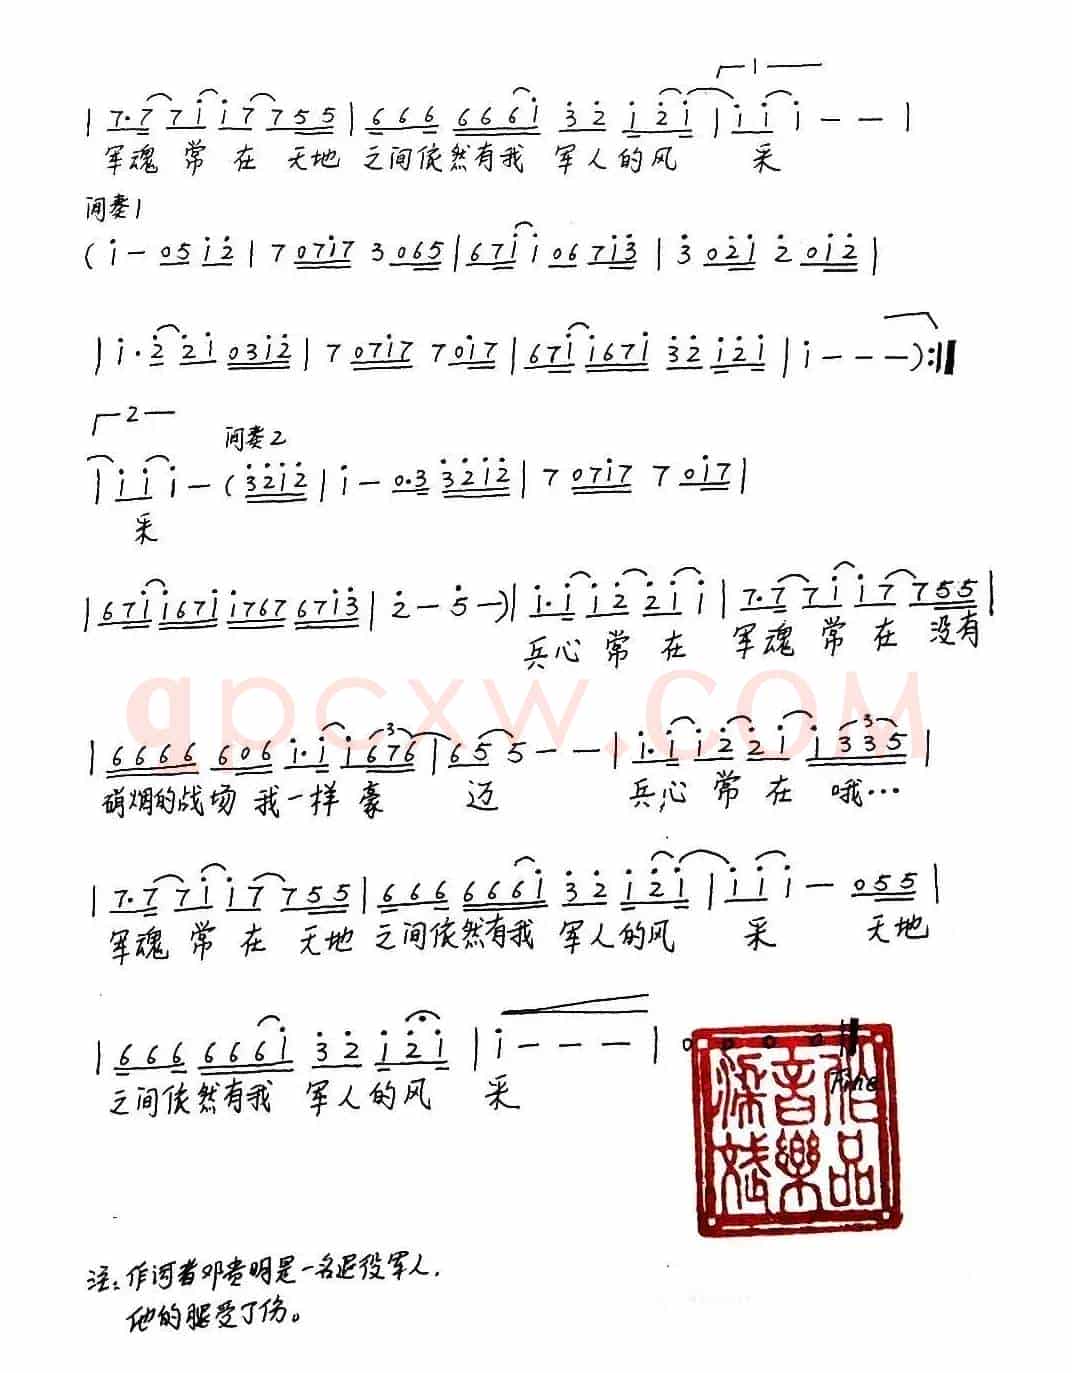 1
| 7·7 7i i7 755 | 666 666i 32 i2i | i i i — — |
军魂 常 在 天地 之间依然有我 军人的风 采
间奏1
( i — 05 i2 | 7 07i7 3 065 | 67i i 06 7i3 | 3 02i 2 0i2 |
| i · 2 2i 03i2 | 7 07i7 7 0i7 | 67i i67i 32 i2i | i — — — ) :||
2
间奏2
| i i i — ( 32i2 | i — 0·3 32i2 | 7 07i7 7 0i7 |
采
| 67i i67i i767 67i3 | 2 — 5 — ) | i·i i2 2i i | 7·7 7i i7 755 |
兵心 常 在 军魂 常 在 没有
3 3
| 6666 606 i·i i676 | 65 5 — — | i·i i2 2i i335 |
硝烟的战场 我一样 豪 迈 兵心 常 在 哦…
| 7·7 7i i7 755 | 666 666i 32 i2i | i i i — 055 |
军魂 常 在 天地 之间依然有我 军人的风 采 天地
| 666 666i 32 i2i | i — — — | 0 0 0 0 ||
之间依然有我 军人的风 采 Fine
qpcxw.COM
注：作词者邓贵明是一名退役军人，
他的腿受了伤。